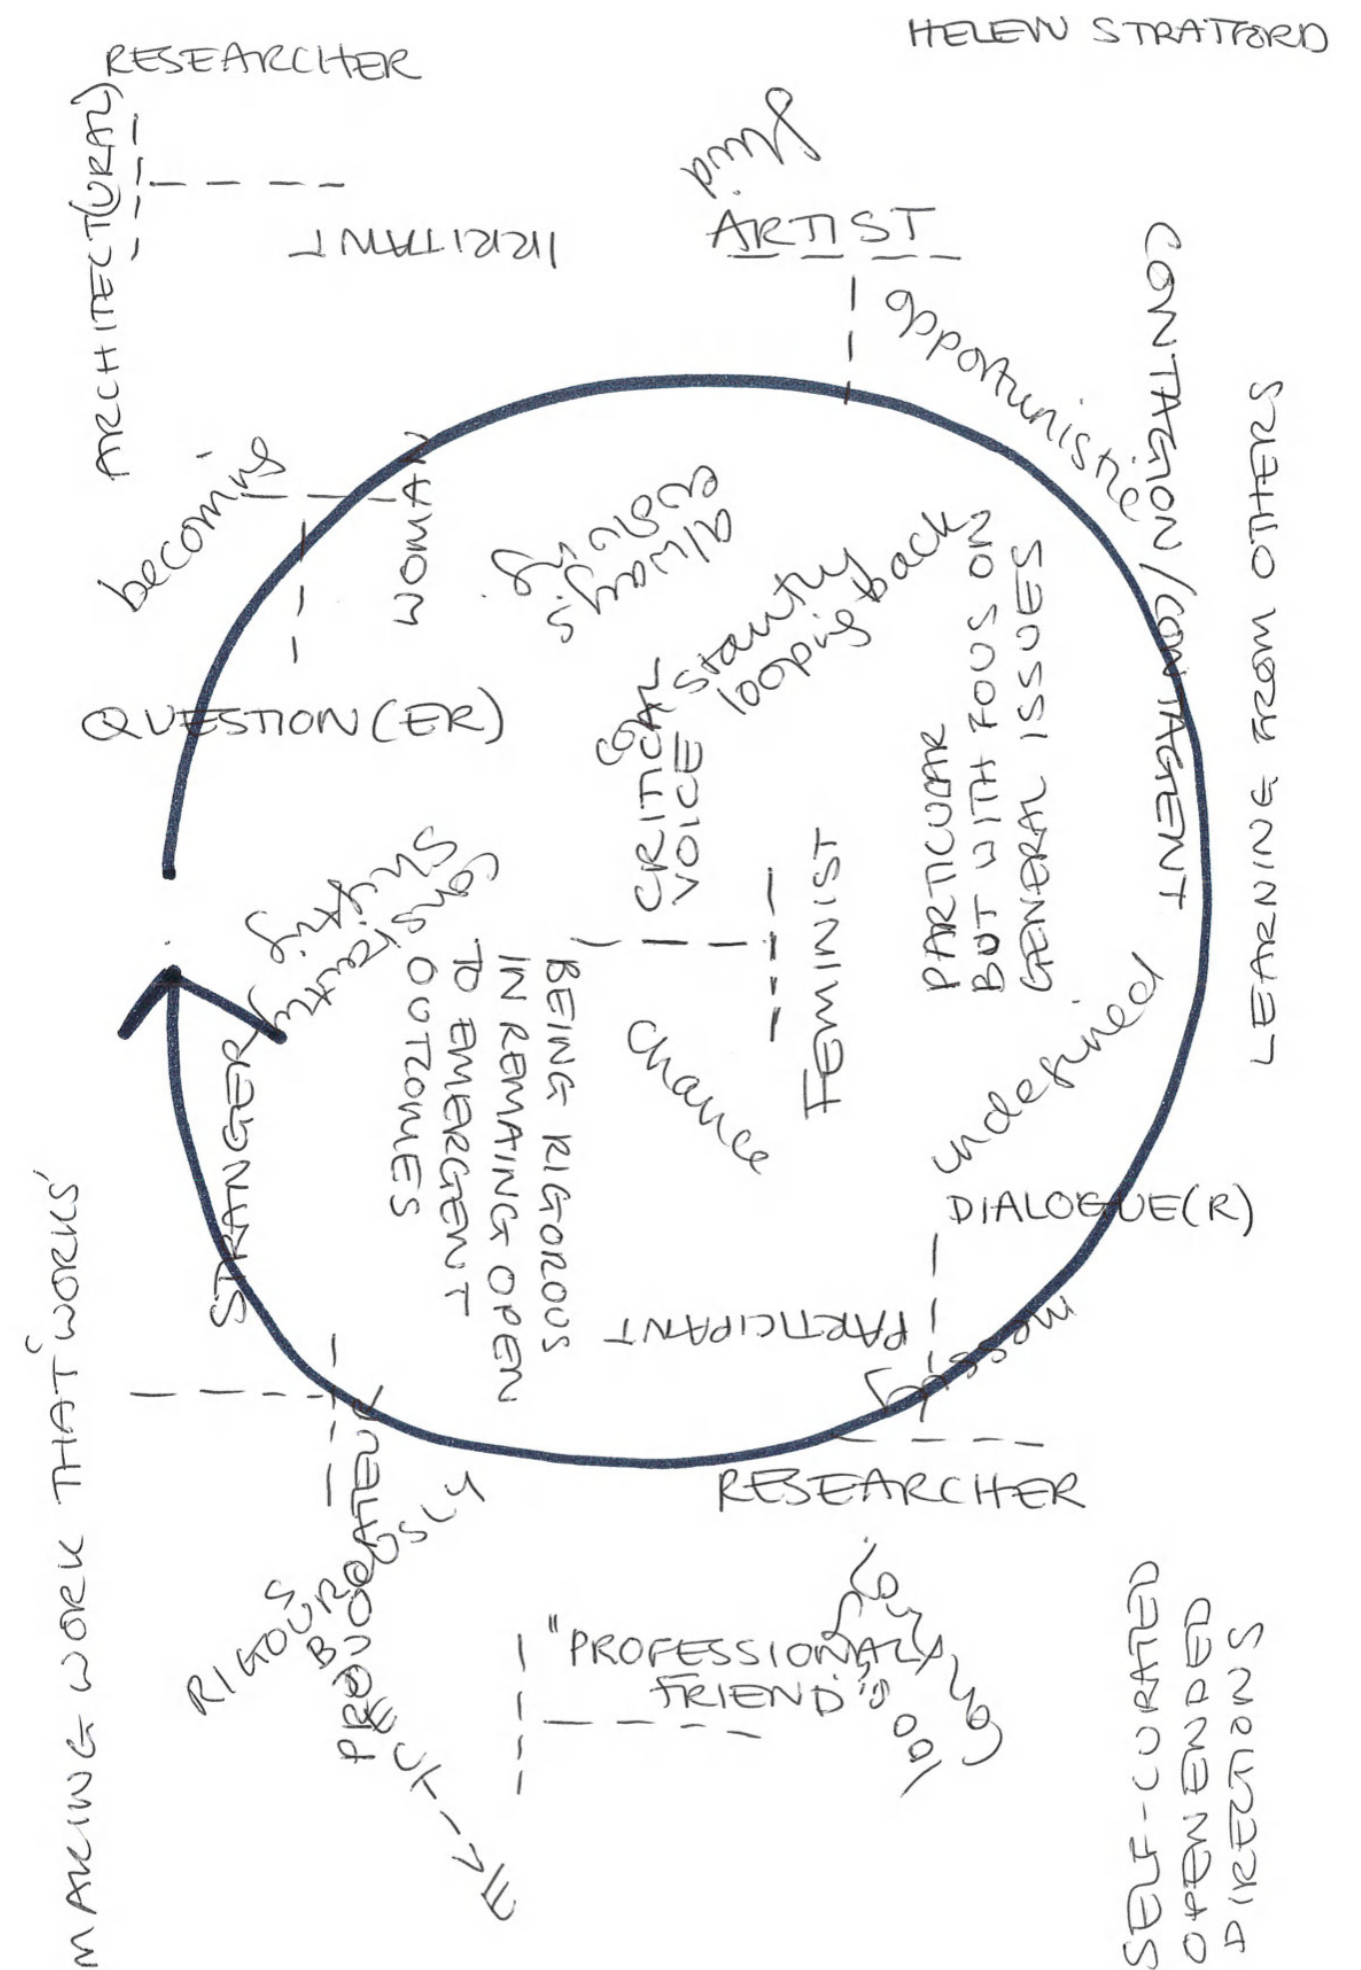 HELEN STRATFORD
RESEARCHER
ARCHITECT(URAL)
IRRITANT
fluid
ARTIST
opportunistic
CONTAGION/CONTAGENT
LEARNING FROM OTHERS
becoming
WOMAN
always
constantly
looping back
QUESTION(ER)
CRITICAL
VOICE
PARTICULAR
BUT WITH FOCUS ON
GENERAL ISSUES
FEMINIST
constantly
shifting
BEING RIGOROUS
IN REMAINING OPEN
TO EMERGENT
OUTCOMES
chance
undefined
STRANGER
DIALOGUE(R)
PARTICIPANT
messy
RESEARCHER
MAKING WORK THAT 'WORKS'
PROVOCATEUR
RIGOUROUSLY
SUBJECTIVE
"PROFESSIONAL
FRIEND"
constantly
SELF-CURATED
OPEN ENDED
DIRECTIONS